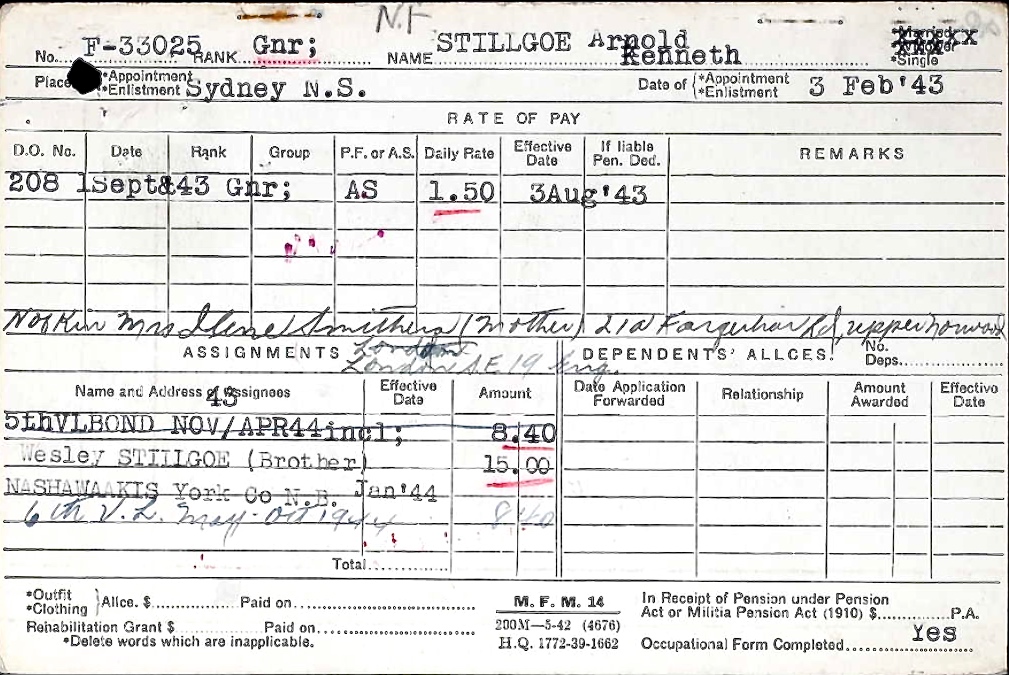 N.F
No. F-33025 RANK Gnr; NAME STILLGOE Arnold Kenneth *Married *Widower *Single
Place *Appointment *Enlistment Sydney N.S. Date of *Appointment *Enlistment 3 Feb'43
RATE OF PAY
D.O. No. Date Rank Group P.F. or A.S. Daily Rate Effective Date If liable Pen. Ded. REMARKS
208 1Sept&43 Gnr; AS 1.50 3Aug'43
N of Kin Mrs Ilene Smithers (Mother) 21a Farquhar Rd, upper norwood
London
London S.E 19 Eng.
ASSIGNMENTS DEPENDENTS' ALLCES. No. Deps.
Name and Address of Assignees Effective Date Amount Date Application Forwarded Relationship Amount Awarded Effective Date
43
5thVLBOND NOV/APR44incl; 8.40
Wesley STILLGOE (Brother) 15.00
NASHAWAAKIS York Co N.B. Jan'44
6th V.L. May-Oct 1944 8.40
Total
*Outfit *Clothing Allce. $ Paid on
Rehabilitation Grant $ Paid on
*Delete words which are inapplicable.
M. F. M. 14
200M—5-42 (4676)
H.Q. 1772-39-1662
In Receipt of Pension under Pension
Act or Militia Pension Act (1910) $ P.A.
Occupational Form Completed Yes